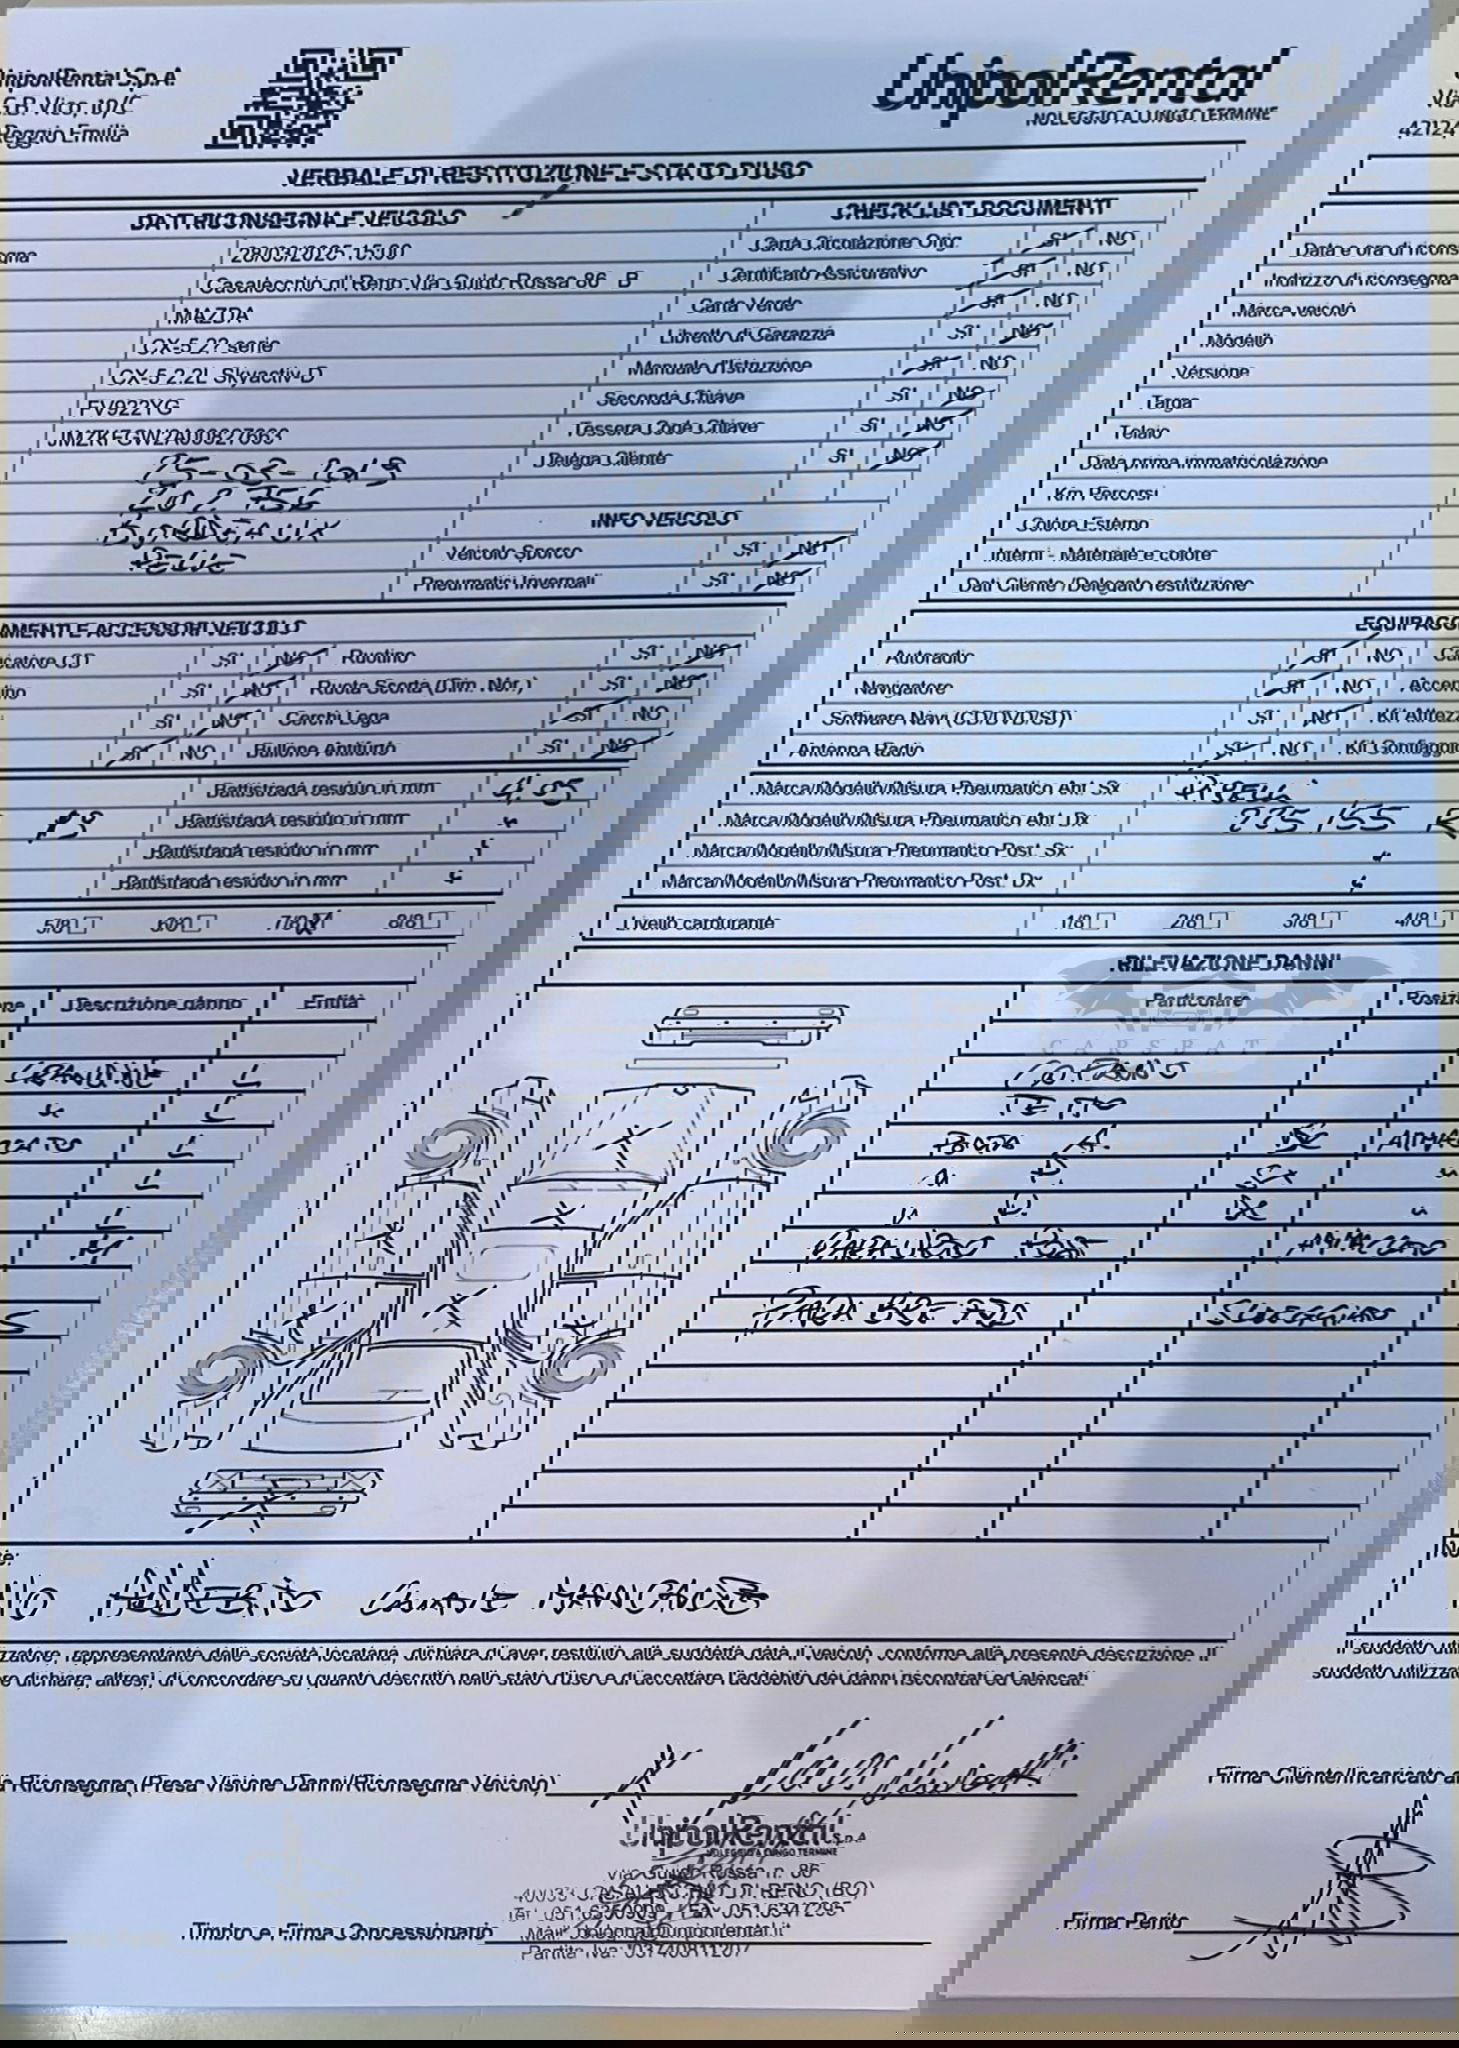 UnipolRental S.p.A.
G.B. Vico, 10/C
Reggio Emilia
UnipolRental
NOLEGGIO A LUNGO TERMINE
Via
42124
VERBALE DI RESTITUZIONE E STATO D'USO
DATI RICONSEGNA E VEICOLO
CHECK LIST DOCUMENTI
28/03/2025 15:00 Carta Circolazione Orig. SI NO Data e ora di ricons
Casalecchio di Reno Via Guido Rossa 86 B Certificato Assicurativo SI NO Indirizzo di riconsegna
MAZDA Carta Verde SI NO Marca veicolo
CX-5 2? serie Libretto di Garanzia SI NO Modello
CX-5 2.2L Skyactiv-D Manuale d'Istruzione SI NO Versione
FV922YG Seconda Chiave SI NO Targa
Tessera Code Chiave SI NO Telaio
15-03-2019 Delega Cliente SI NO Data prima immatricolazione
202756 Km Percorsi
BORDEAUX INFO VEICOLO Colore Esterno
PELLE Veicolo Sporco SI NO Interni - Materiale e colore
Pneumatici Invernali SI NO Dati Cliente /Delegato restituzione
AMENTI E ACCESSORI VEICOLO EQUIPAGG
icatore CD SI NO Ruotino SI NO Autoradio SI NO
ino SI NO Ruota Scorta (Dim. Nor.) SI NO Navigatore SI NO Accen
SI NO Cerchi Lega SI NO Software Navi (CD/DVD/SD) SI NO Kit Attrezz
SI NO Bullone Antifurto SI NO Antenna Radio SI NO Kit Gonfiaggio
Battistrada residuo in mm 4.05 Marca/Modello/Misura Pneumatico Ant. Sx PIRELLI
19 Battistrada residuo in mm " Marca/Modello/Misura Pneumatico Ant. Dx 225/55 R
Battistrada residuo in mm " Marca/Modello/Misura Pneumatico Post. Sx "
Battistrada residuo in mm " Marca/Modello/Misura Pneumatico Post. Dx "
5/8 6/8 7/8 8/8 Livello carburante 1/8 2/8 3/8 4/8
RILEVAZIONE DANNI
one Descrizione danno Entità Particolare Posiz
CARSBAT
GRANDINE L COFANO
" L TETTO
L PORTA A. DX AMMA
L " P. SX "
L " P. DX "
M PARAURTI POST AMMACCATO
PARABREZZA SCHEGGIATO
te:
NO ADDEBITO CHIAVE MANCANTE
No
izzatore, rappresentante della società locataria, dichiara di aver restituito alla suddetta data il veicolo, conforme alla presente descrizione. Il
re dichiara, altresì, di concordare su quanto descritto nello stato d'uso e di accettare l'addebito dei danni riscontrati ed elencati.
Il suddetto util
suddetto utilizza
la Riconsegna (Presa Visione Danni/Riconsegna Veicolo)
Firma Cliente/Incaricato a
UnipolRental S.p.A.
NOLEGGIO A LUNGO TERMINE
Via Guido Rossa n. 86
40033 CASALECCHIO DI RENO (BO)
Fax 051.6347295
Timbro e Firma Concessionario
Mail: bologna@unipolrental.it
Partita Iva: 03740811207
Firma Perito